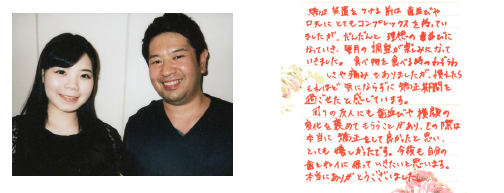 矯正装置をつける前は歯並びや
口元にとてもコンプレックスを持ってい
ましたが、だんだんと理想の歯並びに
なっていき、毎月の調整が楽しみになって
いきました。食べ物を食べる時のわずらわ
しさや痛みもありましたが、慣れたら
それほど気にならずに矯正期間を
過ごせたと感じています。
周りの友人にも歯並びや横顔の
変化を褒めてもらうことがあり、その際は
本当に矯正をして良かったと思い、
とっても嬉しかったです。今後も自分の
歯をキレイに保っていきたいと思います。
本当にありがとうございました。